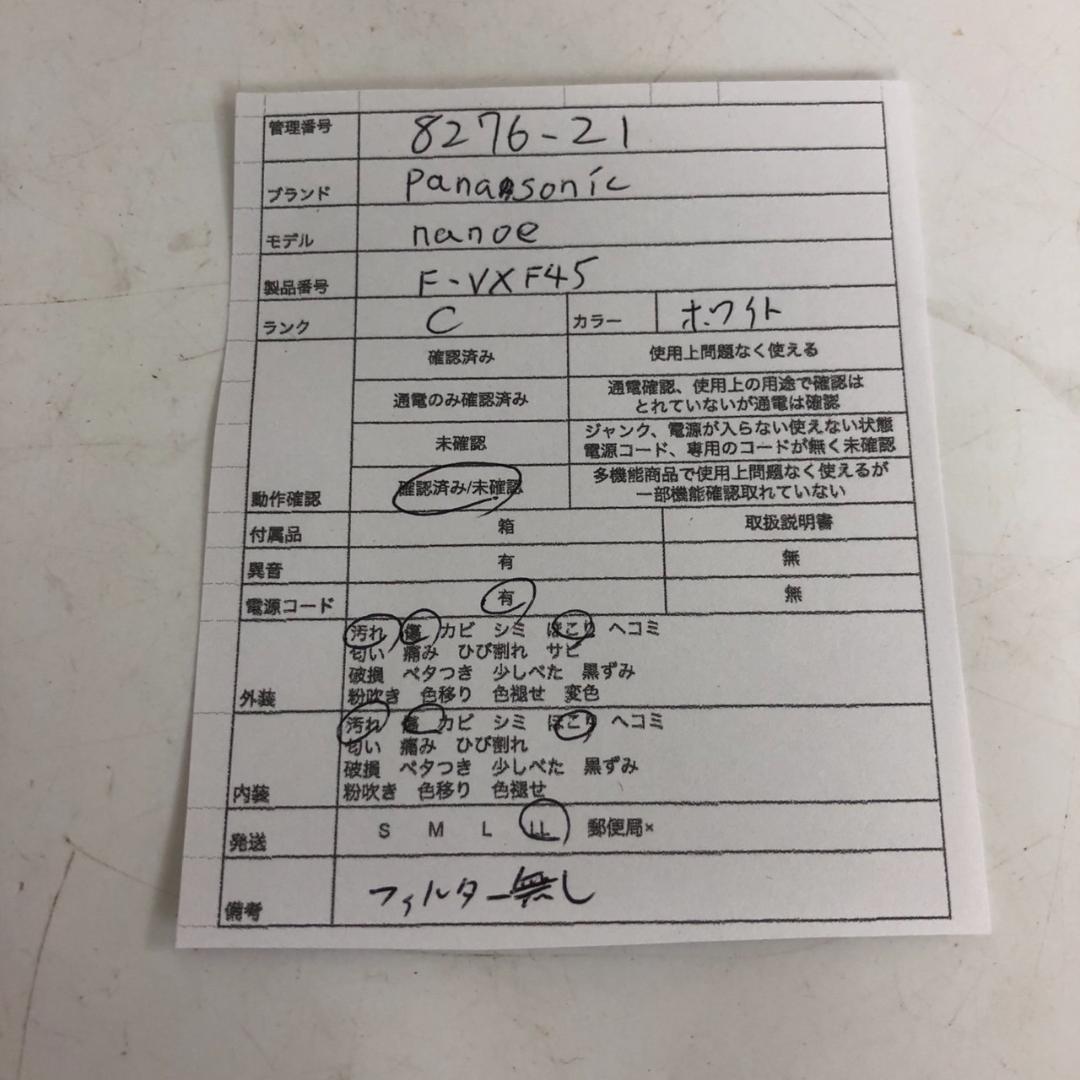 管理番号 8276-21
ブランド Panasonic
モデル nanoe
製品番号 F-VXF45
ランク C カラー ホワイト
確認済み 使用上問題なく使える
通電のみ確認済み 通電確認、使用上の用途で確認は
とれていないが通電は確認
未確認 ジャンク、電源が入らない使えない状態
電源コード、専用のコードが無く未確認
動作確認 確認済み/未確認 多機能商品で使用上問題なく使えるが
一部機能確認取れていない
付属品 箱 取扱説明書
異音 有 無
電源コード 有 無
汚れ 傷 カビ シミ ほこり ヘコミ
匂い 痛み ひび割れ サビ
破損 ベタつき 少しべた 黒ずみ
外装 粉吹き 色移り 色褪せ 変色
汚れ 傷 カビ シミ ほこり ヘコミ
匂い 痛み ひび割れ
破損 ベタつき 少しべた 黒ずみ
内装 粉吹き 色移り 色褪せ
発送 S M L LL 郵便局×
備考 フィルター無し